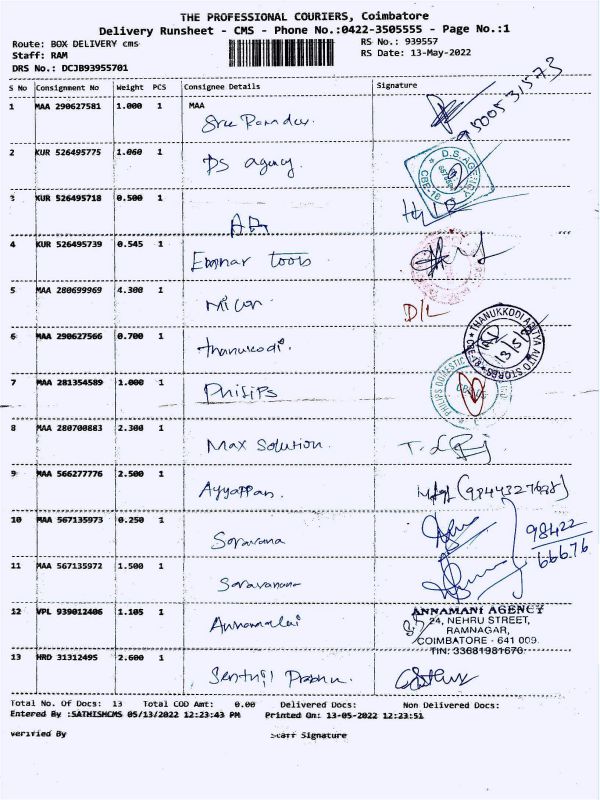 THE PROFESSIONAL COURIERS, Coimbatore
Delivery Runsheet - CMS - Phone No.:0422-3505555 - Page No.:1
Route: BOX DELIVERY cms RS No.: 939557
Staff: RAM RS Date: 13-May-2022
DRS No.: DCJB93955701
S No Consignment No Weight PCS Consignee Details Signature
1 MAA 290627581 1.000 1 MAA
Sree
9500531573
2 KUR 526495775 1.060 1 DS agency.
D.S. AGENCY
CBE-18
3 KUR 526495718 0.500 1
4 KUR 526495739 0.545 1 tools
5 MAA 280699969 4.300 1 Micon. D/L
6 MAA 290627566 0.700 1 thanukodi.
THANUKKODI ADITYA AUTO STORES
13/5/22
7 MAA 281354589 1.000 1 Philips
PHILIPS DOMESTIC
8 MAA 280700883 2.300 1 Max Solution.
9 MAA 566277776 2.500 1 Ayyappan.
10 MAA 567135973 0.250 1 Saravana
98422
66676
11 MAA 567135972 1.500 1 Saravanan
12 VPL 939012406 1.105 1 Annamalai
ANNAMANI AGENCY
24, NEHRU STREET,
RAMNAGAR,
COIMBATORE - 641 009.
TIN: 33681981670
13 HRD 31312495 2.600 1 Senthil Prabhu.
Total No. Of Docs: 13 Total COD Amt: 0.00 Delivered Docs: Non Delivered Docs:
Entered By :SATHISHCMS 05/13/2022 12:23:43 PM Printed On: 13-05-2022 12:23:51
Verified By Staff Signature